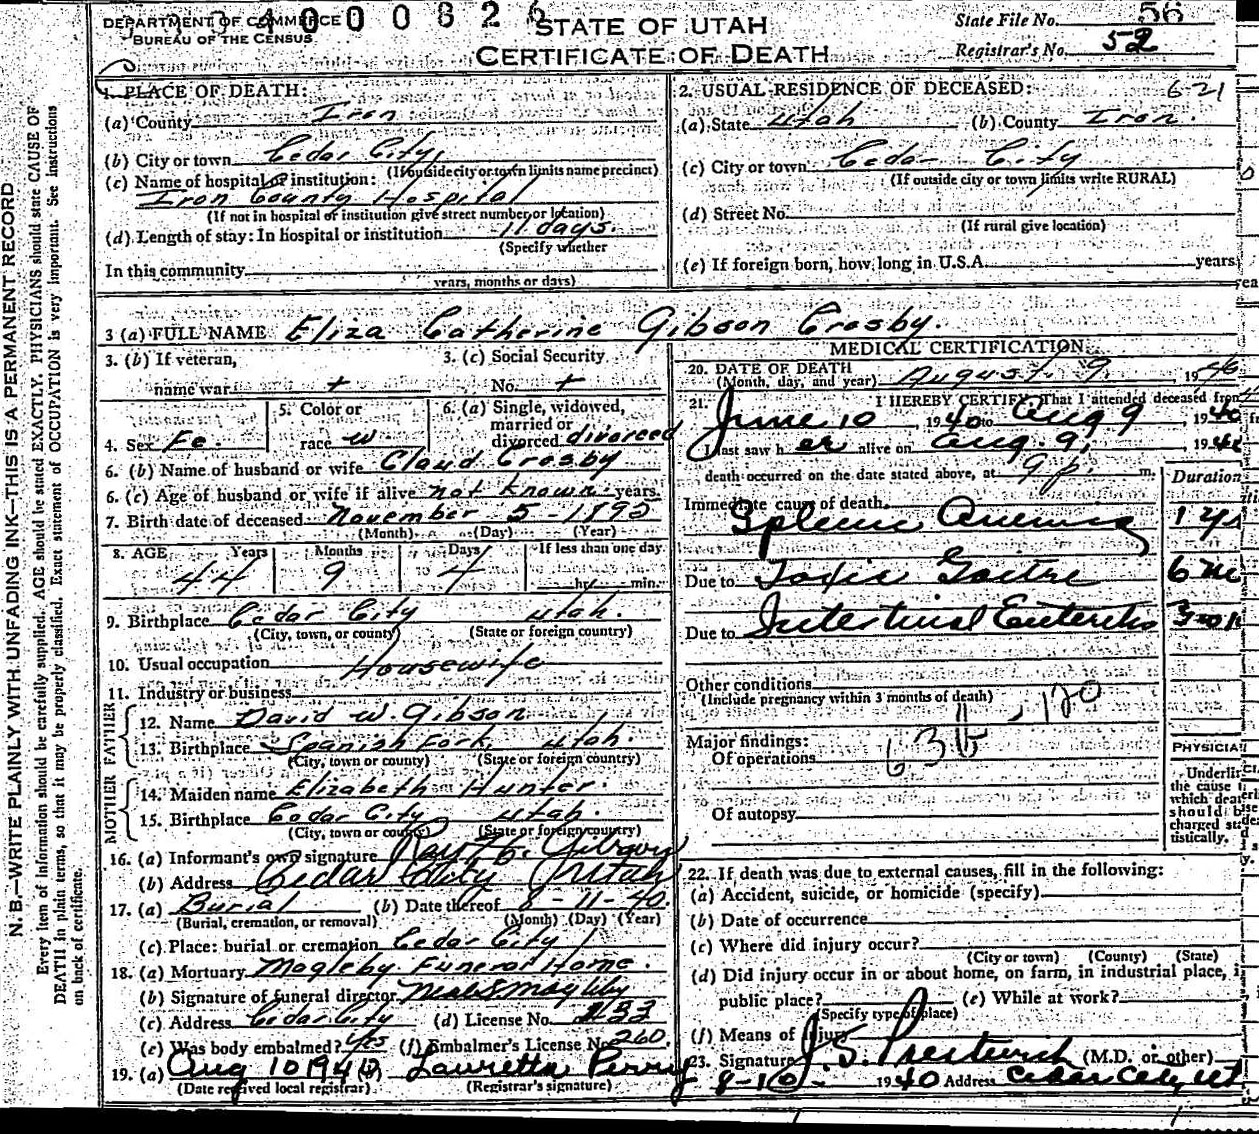 DEPARTMENT OF COMMERCE
BUREAU OF THE CENSUS
STATE OF UTAH
CERTIFICATE OF DEATH
State File No. 56
Registrar's No. 52
1. PLACE OF DEATH:
(a) County Iron
(b) City or town Cedar City
(If outside city or town limits name precinct)
(c) Name of hospital or institution:
Iron County Hospital
(If not in hospital or institution give street number or location)
(d) Length of stay: In hospital or institution 11 days.
(Specify whether
In this community
years, months or days)
2. USUAL RESIDENCE OF DECEASED: 621
(a) State Utah (b) County Iron.
(c) City or town Cedar City
(If outside city or town limits write RURAL)
(d) Street No.
(If rural give location)
(e) If foreign born, how long in U.S.A. years
3 (a) FULL NAME Eliza Catherine Gibson Crosby.
3. (b) If veteran,
name war +
3. (c) Social Security
No. +
4. Sex Fe.
5. Color or
race W
6. (a) Single, widowed,
married or
divorced divorced
6. (b) Name of husband or wife Claud Crosby
6. (c) Age of husband or wife if alive not known years.
7. Birth date of deceased November 5 - 1895
(Month) (Day) (Year)
8. AGE Years Months Days If less than one day
44 9 4 hr. min.
9. Birthplace Cedar City Utah.
(City, town, or county) (State or foreign country)
10. Usual occupation Housewife
11. Industry or business
FATHER
12. Name David W. Gibson
13. Birthplace Spanish Fork, Utah.
(City, town or county) (State or foreign country)
MOTHER
14. Maiden name Elizabeth Hunter.
15. Birthplace Cedar City Utah.
(City, town or county) (State or foreign country)
16. (a) Informant's own signature Gibson
(b) Address Cedar City Utah
17. (a) Burial (b) Date thereof 8-11-40.
(Burial, cremation, or removal) (Month) (Day) (Year)
(c) Place: burial or cremation Cedar City
18. (a) Mortuary Magleby Funeral Home.
(b) Signature of funeral director Magleby
(c) Address Cedar City (d) License No.
(e) Was body embalmed? Yes (f) Embalmer's License No. 260.
19. (a) Aug 10 1940 Lauretta Perry
(Date received local registrar) (Registrar's signature)
MEDICAL CERTIFICATION
20. DATE OF DEATH
(Month, day, and year) August 9, 19
21. I HEREBY CERTIFY, That I attended deceased from
June 10, 1940 to Aug 9, 1940
I last saw her alive on Aug. 9, 194
death occurred on the date stated above, at 9 p. m.
Duration
Immediate cause of death
Splenic Anemia 1 yr
Due to Toxic Goitre 6 mo
Due to Intestinal Enteritis
Other conditions
(Include pregnancy within 3 months of death)
63b, 120
Major findings:
Of operations
Of autopsy
PHYSICIA
Underlin
the cause
which dea
should b
charged sta
tistically.
22. If death was due to external causes, fill in the following:
(a) Accident, suicide, or homicide (specify)
(b) Date of occurrence
(c) Where did injury occur?
(City or town) (County) (State)
(d) Did injury occur in or about home, on farm, in industrial place, i
public place? (e) While at work?
(Specify type of place)
(f) Means of injury
23. Signature J. S. Prestwich (M.D. or other)
8-10- 1940 Address Cedar City, Ut
N. B.—WRITE PLAINLY WITH UNFADING INK—THIS IS A PERMANENT RECORD
Every item of information should be carefully supplied. AGE should be stated EXACTLY. PHYSICIANS should state CAUSE OF
DEATH in plain terms, so that it may be properly classified. Exact statement of OCCUPATION is very important. See instructions
on back of certificate.